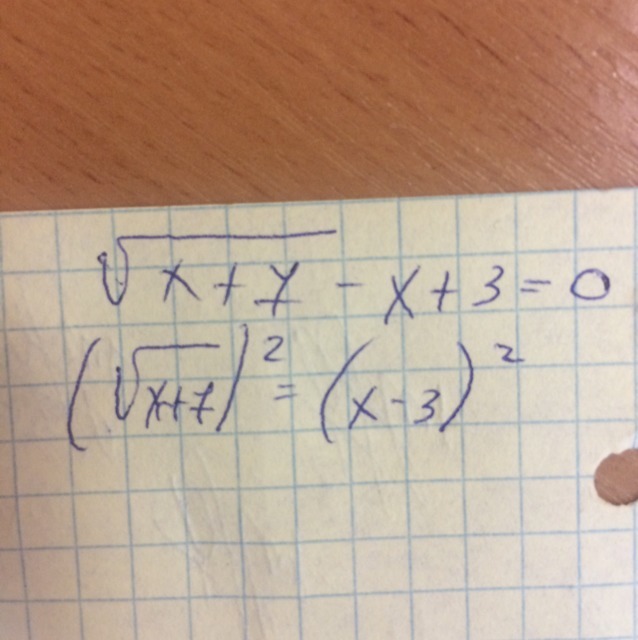 √(x+7) - x + 3 = 0
(√(x+7))² = (x-3)²